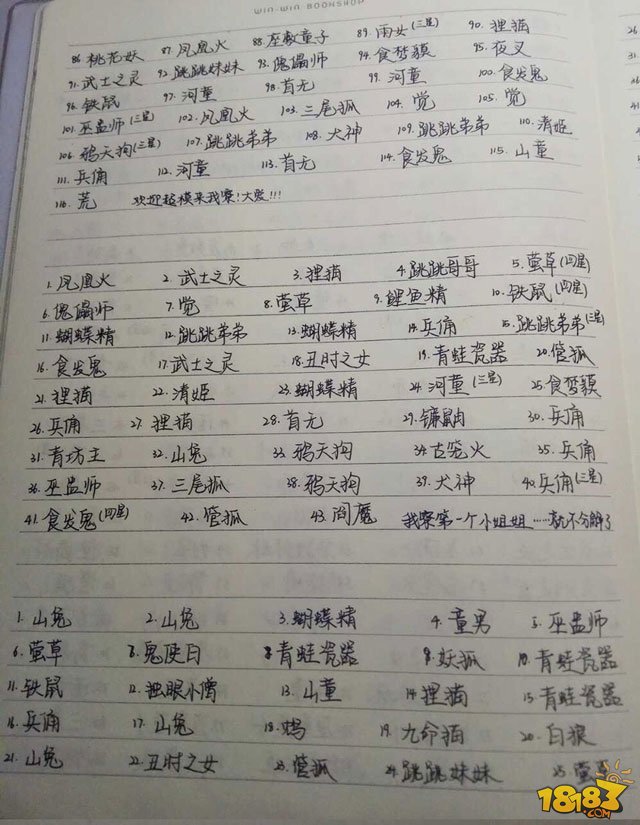 WIN-WIN BOOKSHOP
86.桃花妖 87.凤凰火 88.座敷童子 89.雨女(三星) 90.狸猫
91.武士之灵 92.跳跳妹妹 93.傀儡师 94.食梦貘 95.夜叉
96.铁鼠 97.河童 98.首无 99.河童 100.食发鬼
101.巫蛊师(三星) 102.凤凰火 103.三尾狐 104.觉 105.觉
106.鸦天狗(三星) 107.跳跳弟弟 108.犬神 109.跳跳弟弟 110.清姬
111.兵俑 112.河童 113.首无 114.食发鬼 115.山童
116.荒 欢迎 来我寮!大 !!!
1.凤凰火 2.武士之灵 3.狸猫 4.跳跳哥哥 5.萤草(四星)
6.傀儡师 7.觉 8.萤草 9.鲤鱼精 10.铁鼠(四星)
11.蝴蝶精 12.跳跳弟弟 13.蝴蝶精 14.兵俑 15.跳跳弟弟(三星)
16.食发鬼 17.武士之灵 18.丑时之女 19.青蛙瓷器 20.管狐
21.狸猫 22.清姬 23.蝴蝶精 24.河童(三星) 25.食梦貘
26.兵俑 27.狸猫 28.首无 29.镰鼬 30.兵俑
31.青坊主 32.山兔 33.鸦天狗 34.古笼火 35.兵俑
36.巫蛊师 37.三尾狐 38.鸦天狗 39.犬神 40.兵俑(三星)
41.食发鬼(四星) 42.管狐 43.阎魔 我寮第一个小姐姐……就不分解了
1.山兔 2.山兔 3.蝴蝶精 4.童男 5.巫蛊师
6.萤草 7.鬼使白 8.青蛙瓷器 9.妖狐 10.青蛙瓷器
11.铁鼠 12.独眼小僧 13.山童 14.狸猫 15.青蛙瓷器
16.兵俑 17.山兔 18.鸩 19.九命猫 20.白狼
21.山兔 22.丑时之女 23.管狐 24.跳跳妹妹 25.萤
18183.COM